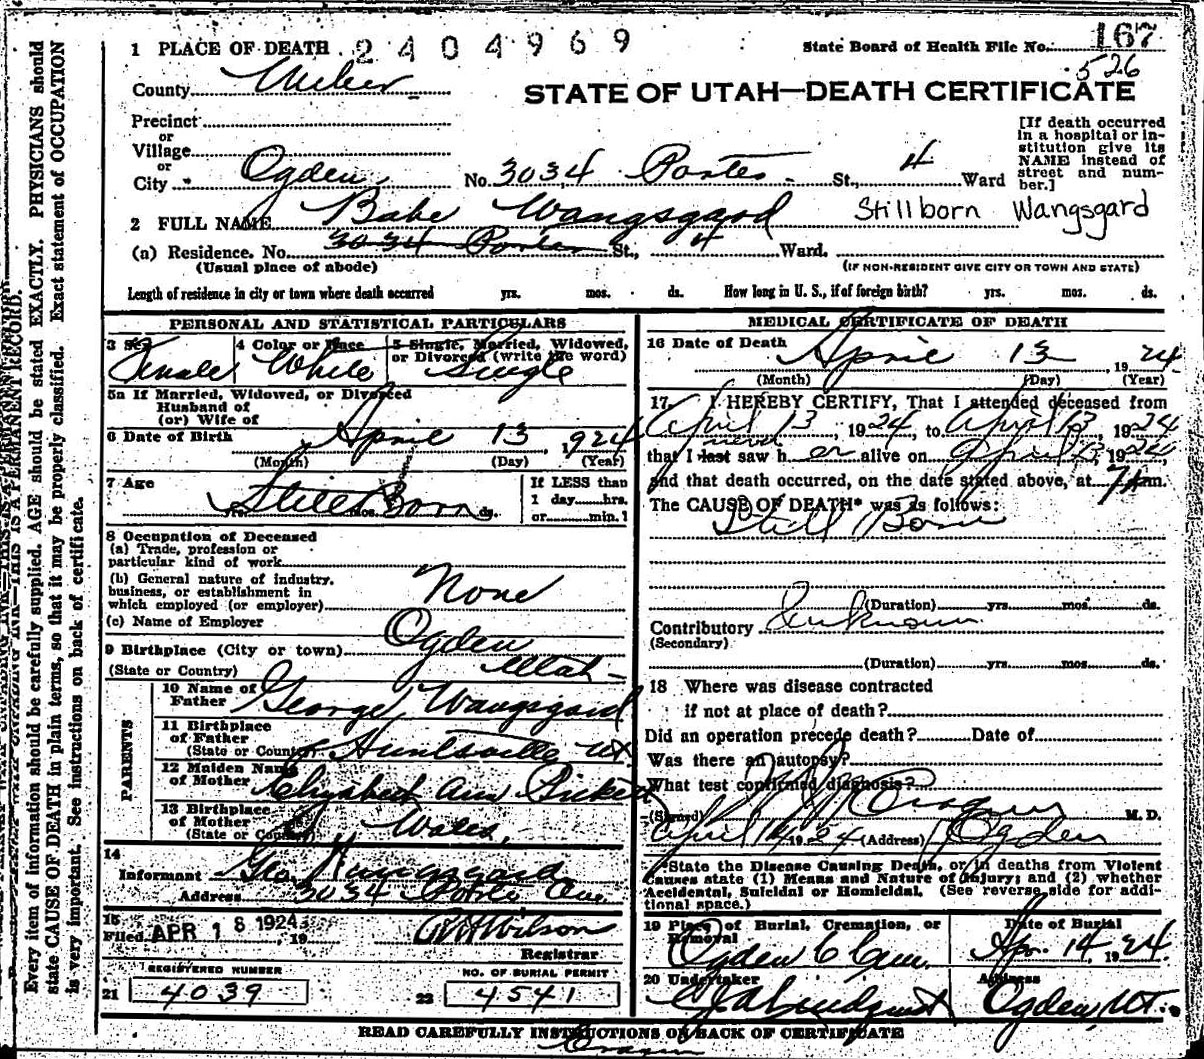 1 PLACE OF DEATH 2404969 State Board of Health File No. 167
526
County Weber
STATE OF UTAH—DEATH CERTIFICATE
Precinct
or
Village
or
City Ogden No. 3034 Porter St., 4 Ward
[If death occurred
in a hospital or in-
stitution give its
NAME instead of
street and num-
ber.]
2 FULL NAME Babe Wangsgard Stillborn Wangsgard
(a) Residence. No. 3034 Porter St., 4 Ward.
(Usual place of abode) (IF NON-RESIDENT GIVE CITY OR TOWN AND STATE)
Length of residence in city or town where death occurred yrs. mos. ds. How long in U. S., if of foreign birth? yrs. mos. ds.
PERSONAL AND STATISTICAL PARTICULARS
3 Sex 4 Color or Race 5 Single, Married, Widowed,
or Divorced (write the word)
Female White Single
5a If Married, Widowed, or Divorced
Husband of
(or) Wife of
6 Date of Birth April 13 1924
(Month) (Day) (Year)
7 Age Still Born yrs. mos. ds.
If LESS than
1 day hrs.
or min.
8 Occupation of Deceased
(a) Trade, profession or
particular kind of work
(b) General nature of industry,
business, or establishment in
which employed (or employer) None
(c) Name of Employer
9 Birthplace (City or town) Ogden
(State or Country) Utah
PARENTS
10 Name of
Father George Wangsgard
11 Birthplace
of Father
(State or Country) Huntsville Ut
12 Maiden Name
of Mother Elizabeth Ann
13 Birthplace
of Mother
(State or Country) Wales
14
Informant Geo Wangsgard
Address 3034 Porter Ave
15
Filed APR 18 1924, 19 Wilson
Registrar
REGISTERED NUMBER NO. OF BURIAL PERMIT
21 4039 22 4541
MEDICAL CERTIFICATE OF DEATH
16 Date of Death April 13 1924
(Month) (Day) (Year)
17 I HEREBY CERTIFY, That I attended deceased from
April 13, 1924, to April 13, 1924
never
that I last saw her alive on April 13, 1924,
and that death occurred, on the date stated above, at 7 A m.
The CAUSE OF DEATH* was as follows:
Still Born
(Duration) yrs. mos. ds.
Contributory Unknown
(Secondary)
(Duration) yrs. mos. ds.
18 Where was disease contracted
if not at place of death?
Did an operation precede death? Date of
Was there an autopsy?
What test confirmed diagnosis?
(Signed) M. D.
April 14 1924 (Address) Ogden
*State the Disease Causing Death, or in deaths from Violent
Causes state (1) Means and Nature of Injury; and (2) whether
Accidental, Suicidal or Homicidal. (See reverse side for addi-
tional space.)
19 Place of Burial, Cremation, or Date of Burial
Removal
Ogden C Cem. Apr. 14 1924
20 Undertaker Address
Lindquist Ogden, Ut.
READ CAREFULLY INSTRUCTIONS ON BACK OF CERTIFICATE
Every item of information should be carefully supplied. AGE should be stated EXACTLY. PHYSICIANS should
state CAUSE OF DEATH in plain terms, so that it may be properly classified. Exact statement of OCCUPATION
is very important. See instructions on back of certificate.
THIS IS A PERMANENT RECORD.